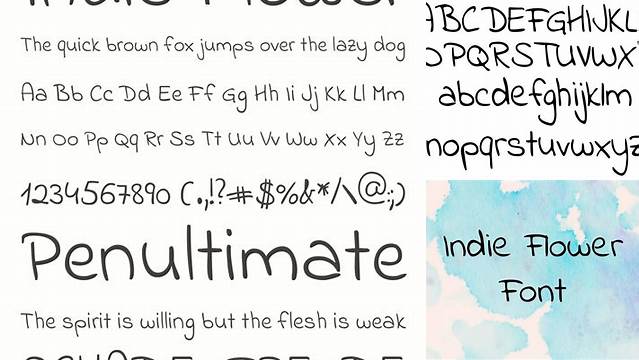 Indie Flower
The quick brown fox jumps over the lazy dog
Aa Bb Cc Dd Ee Ff Gg Hh Ii Jj Kk Ll Mm
Nn Oo Pp Qq Rr Ss Tt Uu Vv Ww Xx Yy Zz
1234567890 (.,!?#$%&*/\@:;)
Penultimate
The spirit is willing but the flesh is weak
ABCDEFGHIJKL
OPQRSTUVWX
abcdefghijklm
nopqrstuvwxyz
Indie Flower
Font